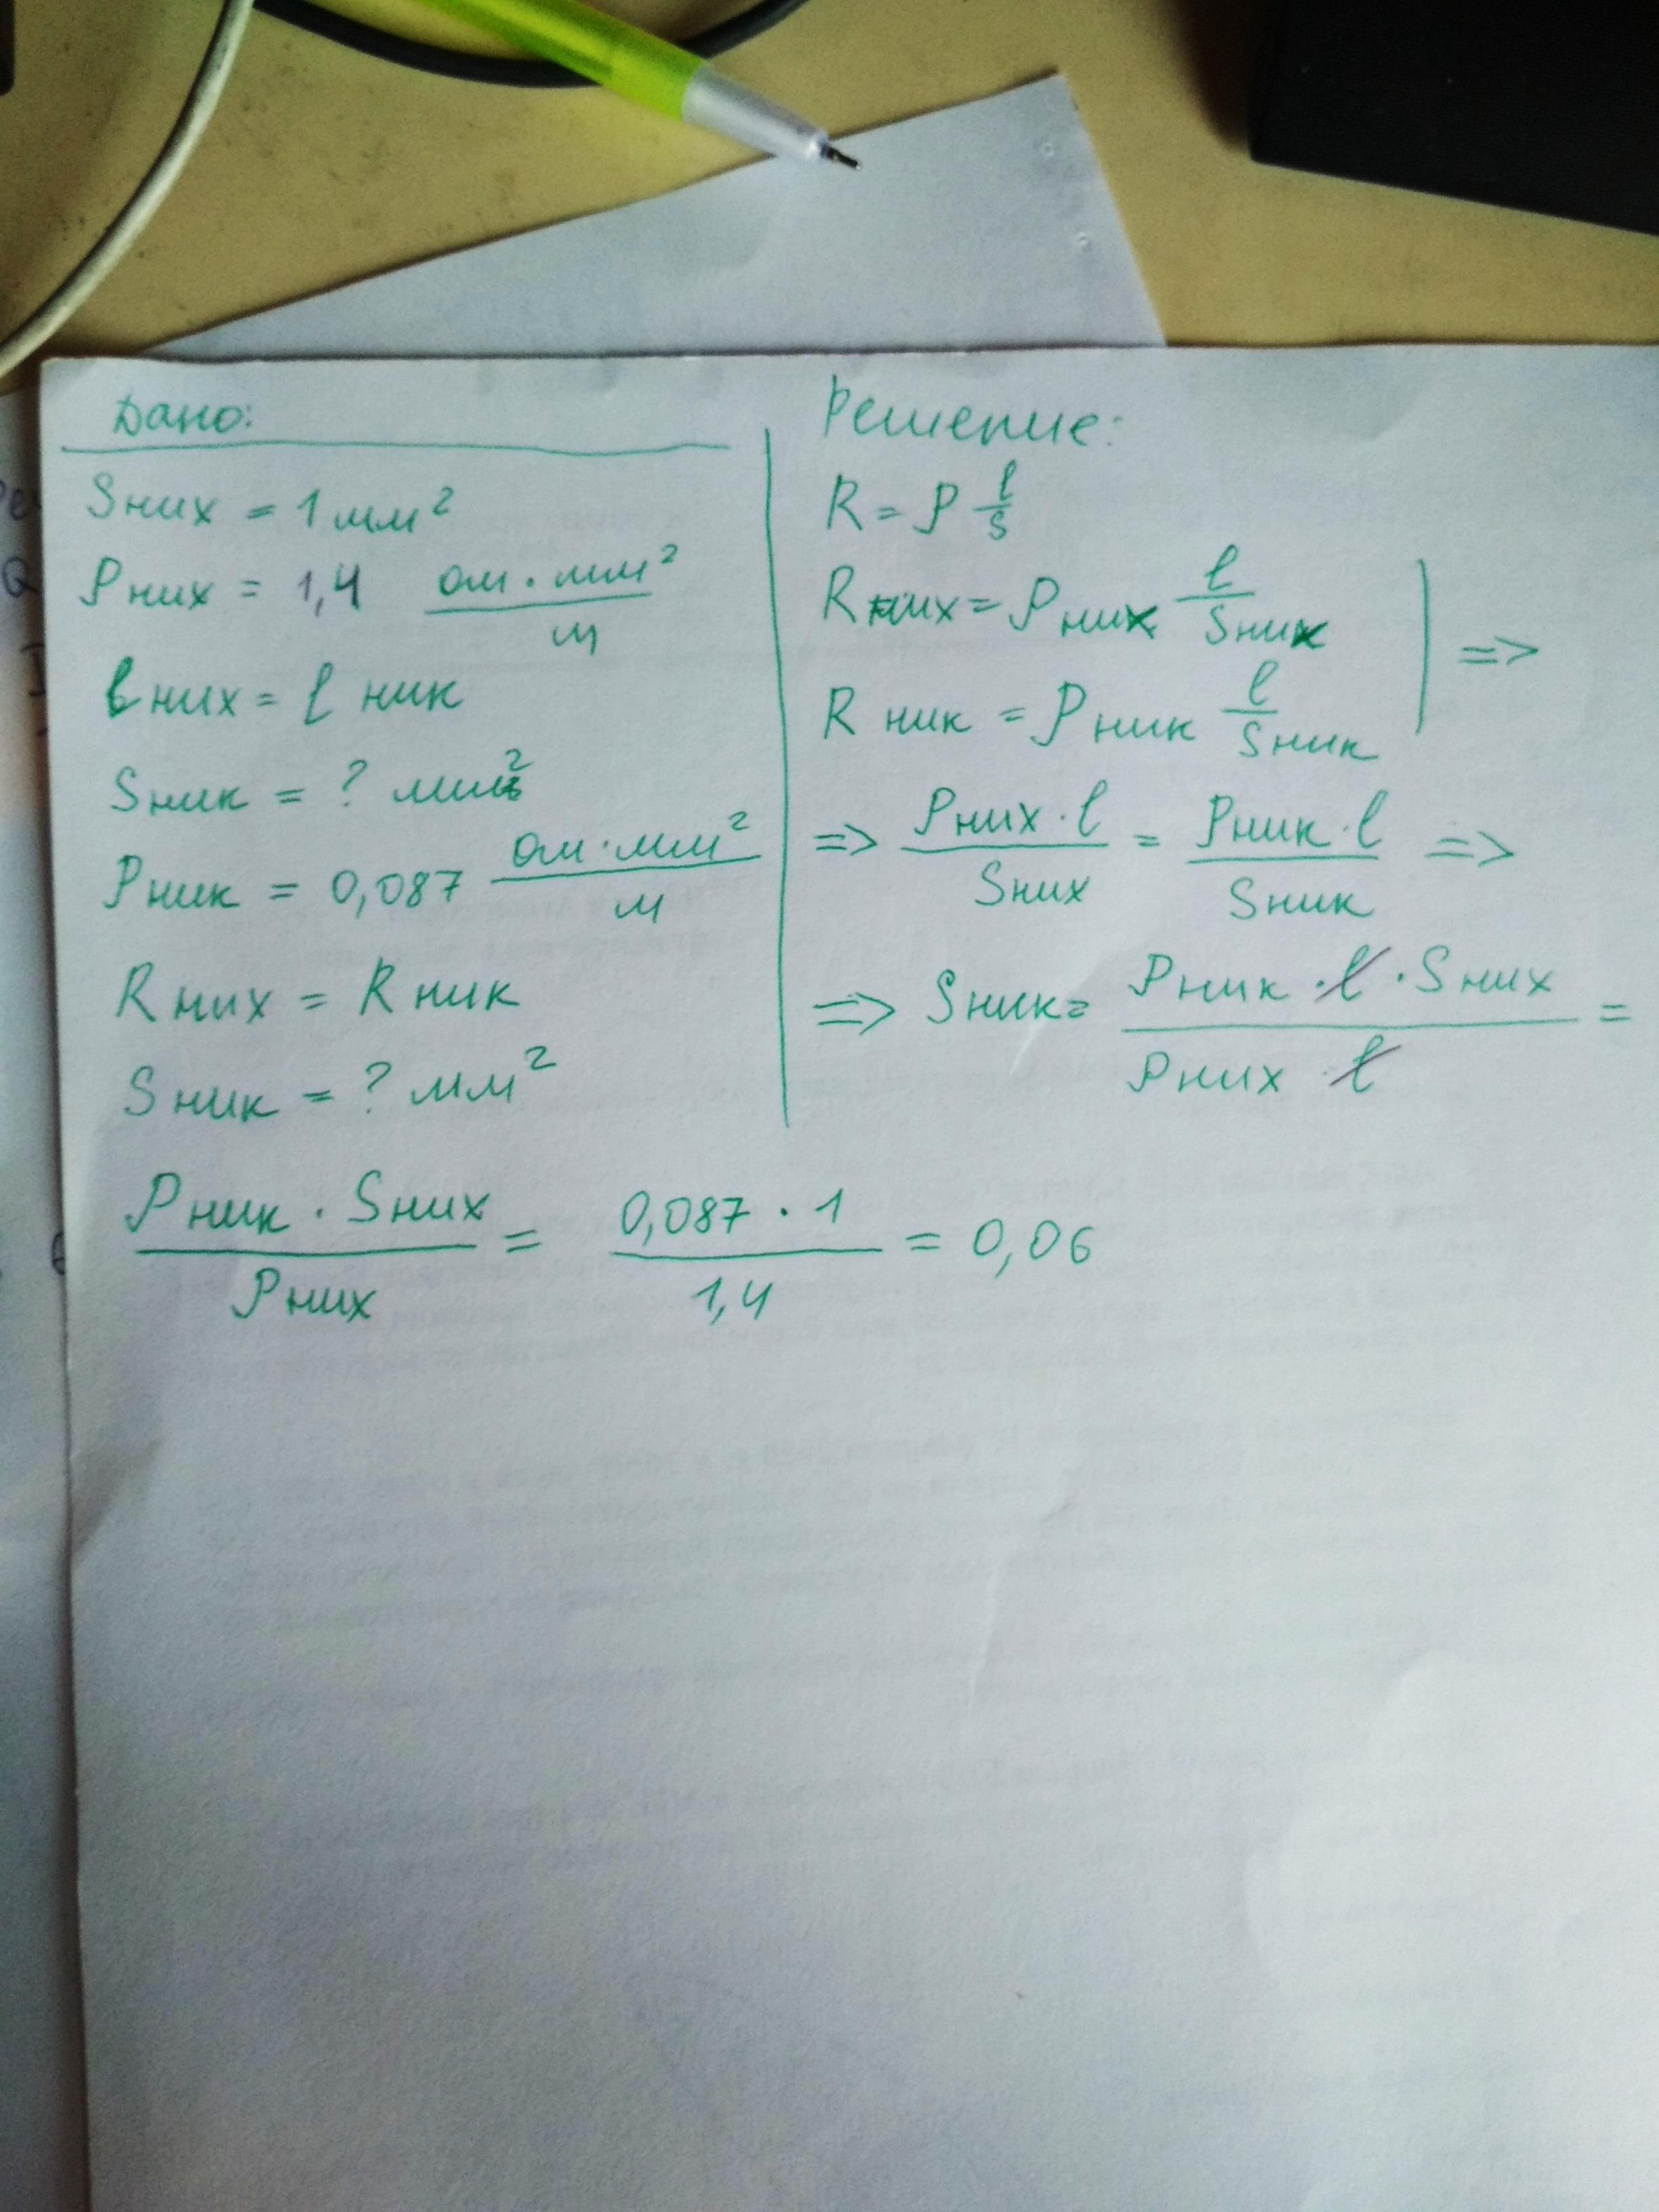 Дано:
Sних = 1 мм²
ρних = 1,4 ом·мм²/м
lних = l ник
Sник = ? мм²
ρник = 0,087 ом·мм²/м
Rних = Rник
Sник = ? мм²
Решение:
R = ρ l/S
Rних = ρних l/Sних
=>
R ник = ρник l/Sник
=> ρних·l/Sних = ρник·l/Sник =>
=> Sник = ρник·l·Sних/ρних·l =
ρник·Sних/ρних = 0,087·1/1,4 = 0,06